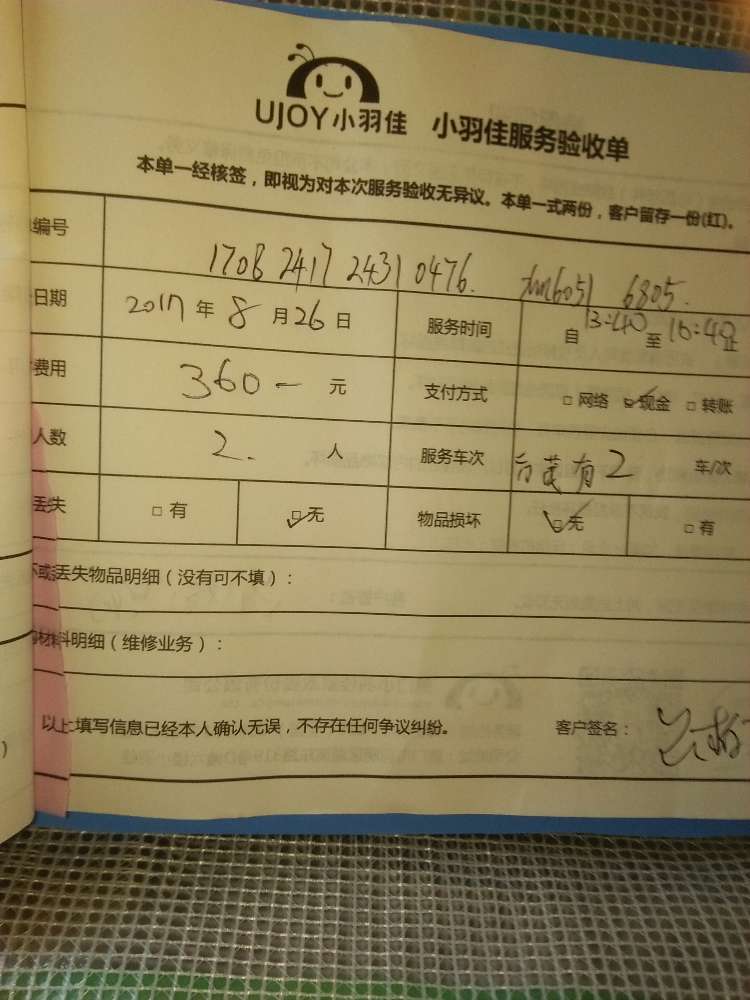 UJOY小羽佳 小羽佳服务验收单
本单一经核签，即视为对本次服务验收无异议。本单一式两份，客户留存一份(红)。
编号 1708 2417 2431 0476. 6051 6805.
日期 2017年8月26日 服务时间 自13:40至16:40止
费用 360一 元 支付方式 □ 网络 ☑ 现金 □ 转账
人数 2. 人 服务车次 有2 车/次
丢失 □ 有 ☑ 无 物品损坏 ☑ 无 □ 有
丢失物品明细（没有可不填）：
料明细（维修业务）：
以上填写信息已经本人确认无误，不存在任何争议纠纷。 客户签名：